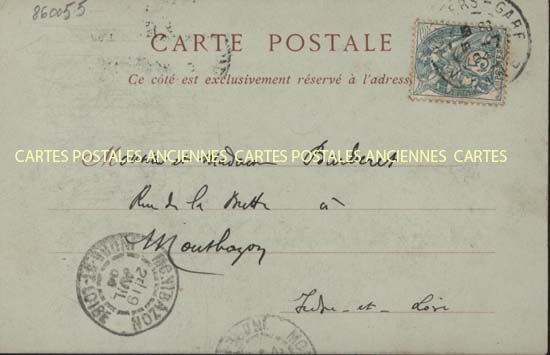 860055
CARTE POSTALE
Ce côté est exclusivement réservé à l'adresse
GARE
CARTES POSTALES ANCIENNES CARTES POSTALES ANCIENNES CARTES
Monsieur et Madame Barberet
Rue de la à
Montbazon
Indre-et-Loire
MONTBAZON
INDRE-ET-LOIRE